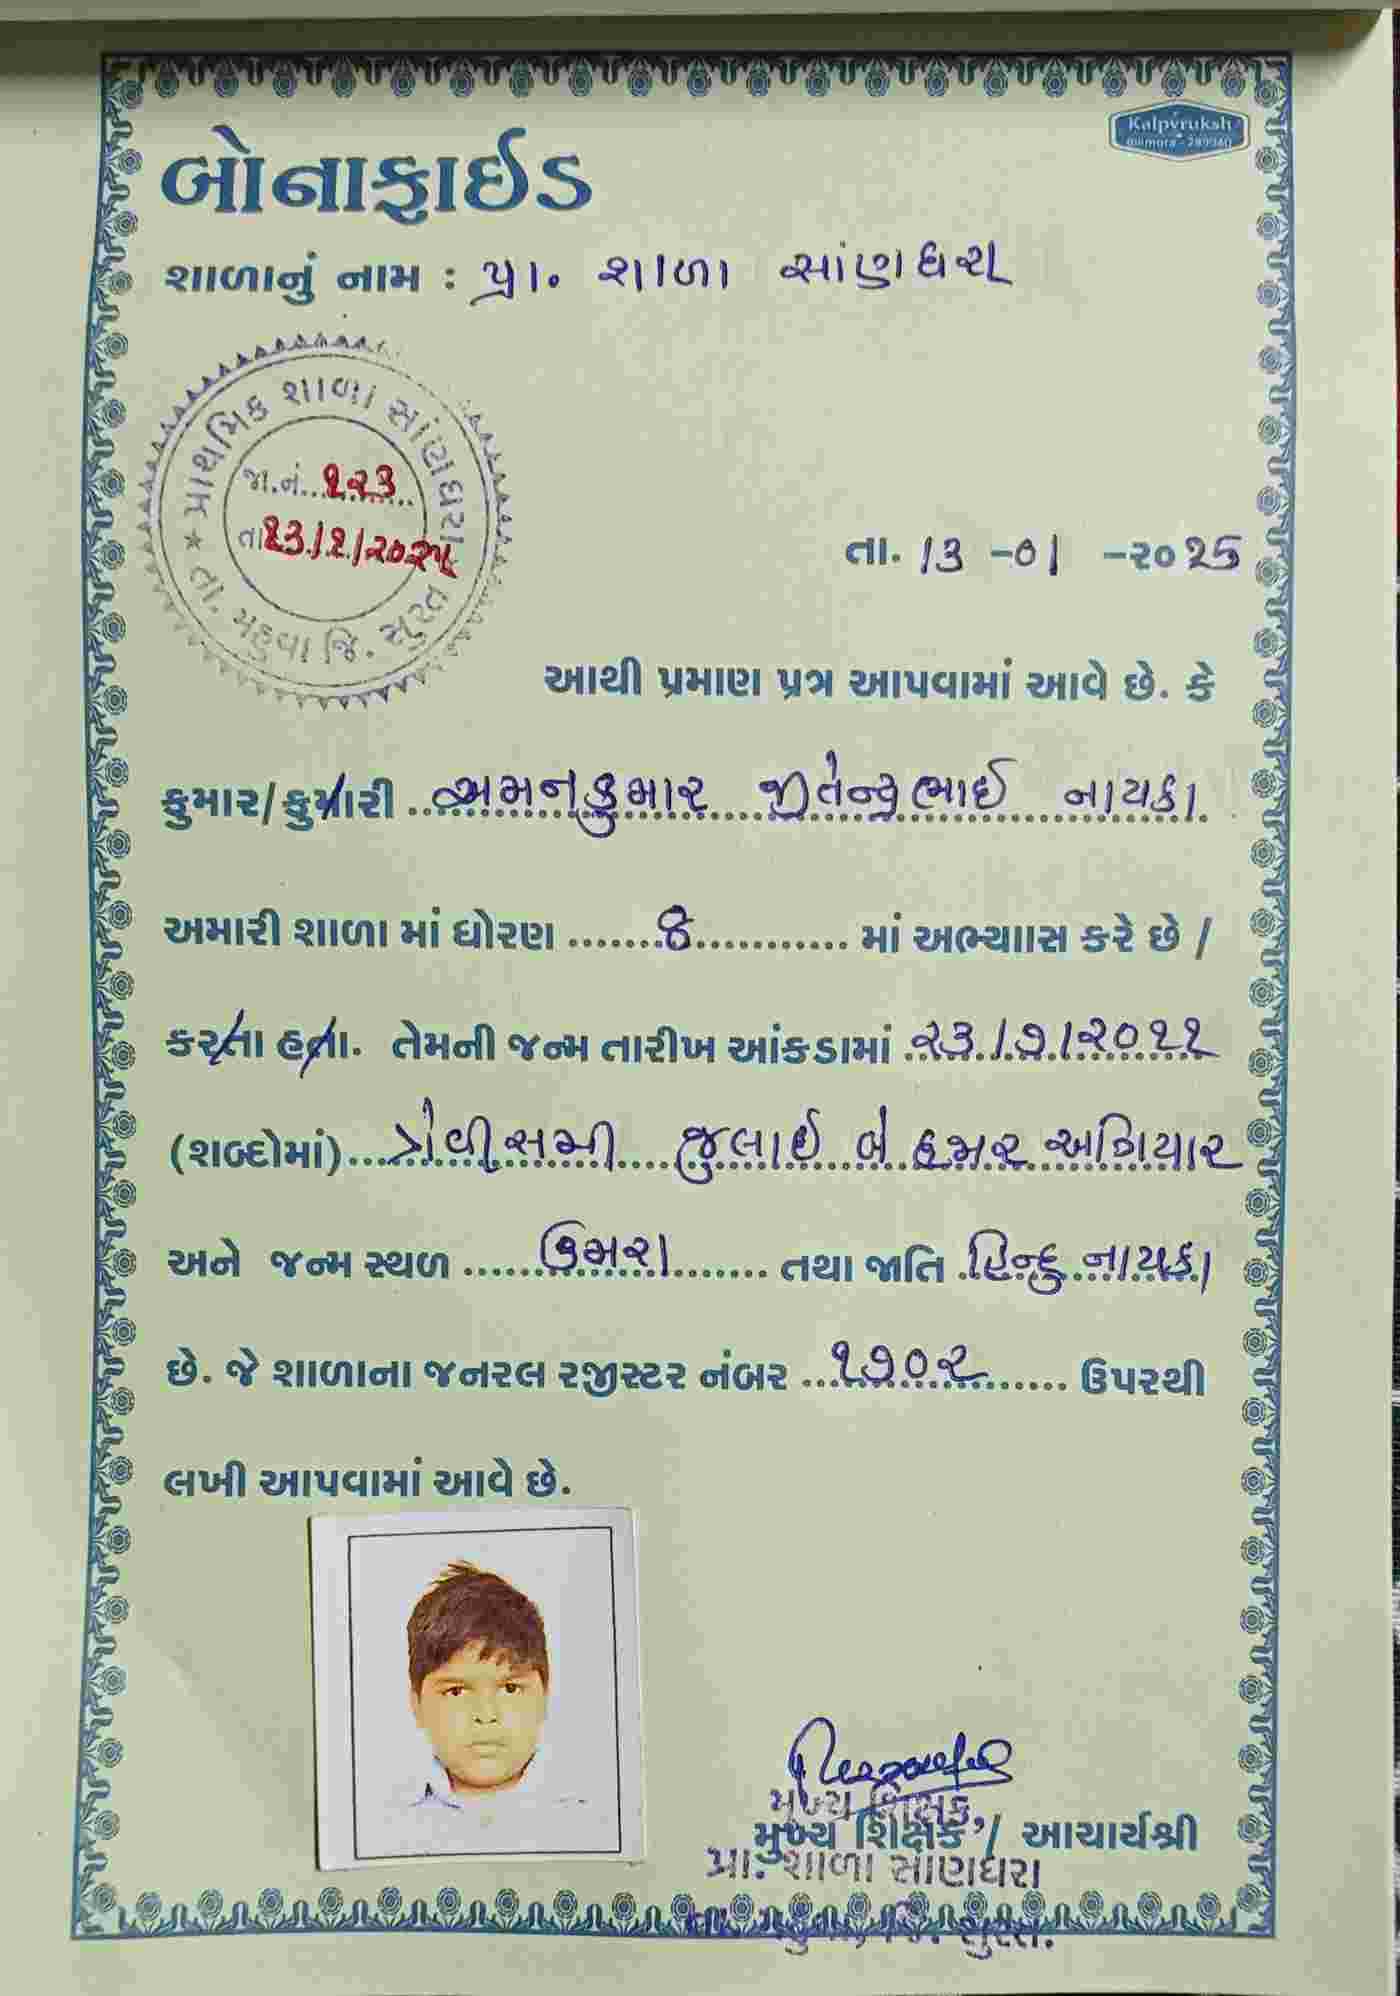 Kalpvruksh
બોનાફાઈડ
શાળાનું નામ : પ્રા. શાળા સાંણધરા
પ્રાથમિક શાળા સાંણધરા
જા.નં. ૧૨૩
તા ૧૩/૧/૨૦૨૫
★ તા. મહુવા જિ. સુરત
તા. 13 -01 -૨૦25
આથી પ્રમાણ પત્ર આપવામાં આવે છે. કે
કુમાર/કુમારી અમનકુમાર જીતેન્દ્રભાઈ નાયકા
અમારી શાળા માં ધોરણ 8 માં અભ્યાાસ કરે છે /
કરતા હતા. તેમની જન્મ તારીખ આંકડામાં ૨૩/૭/૨૦૧૧
(શબ્દોમાં) ત્રેવીસમી જુલાઈ બે હજાર અગિયાર
અને જન્મ સ્થળ ઉમરા તથા જાતિ હિન્દુ નાયકા
છે. જે શાળાના જનરલ રજીસ્ટર નંબર ૧૭૦૨ ઉપરથી
લખી આપવામાં આવે છે.
મુખ્ય શિક્ષક,
મુખ્ય શિક્ષક / આચાર્યશ્રી
પ્રા. શાળા સાણધરા
જિ. સુરત.